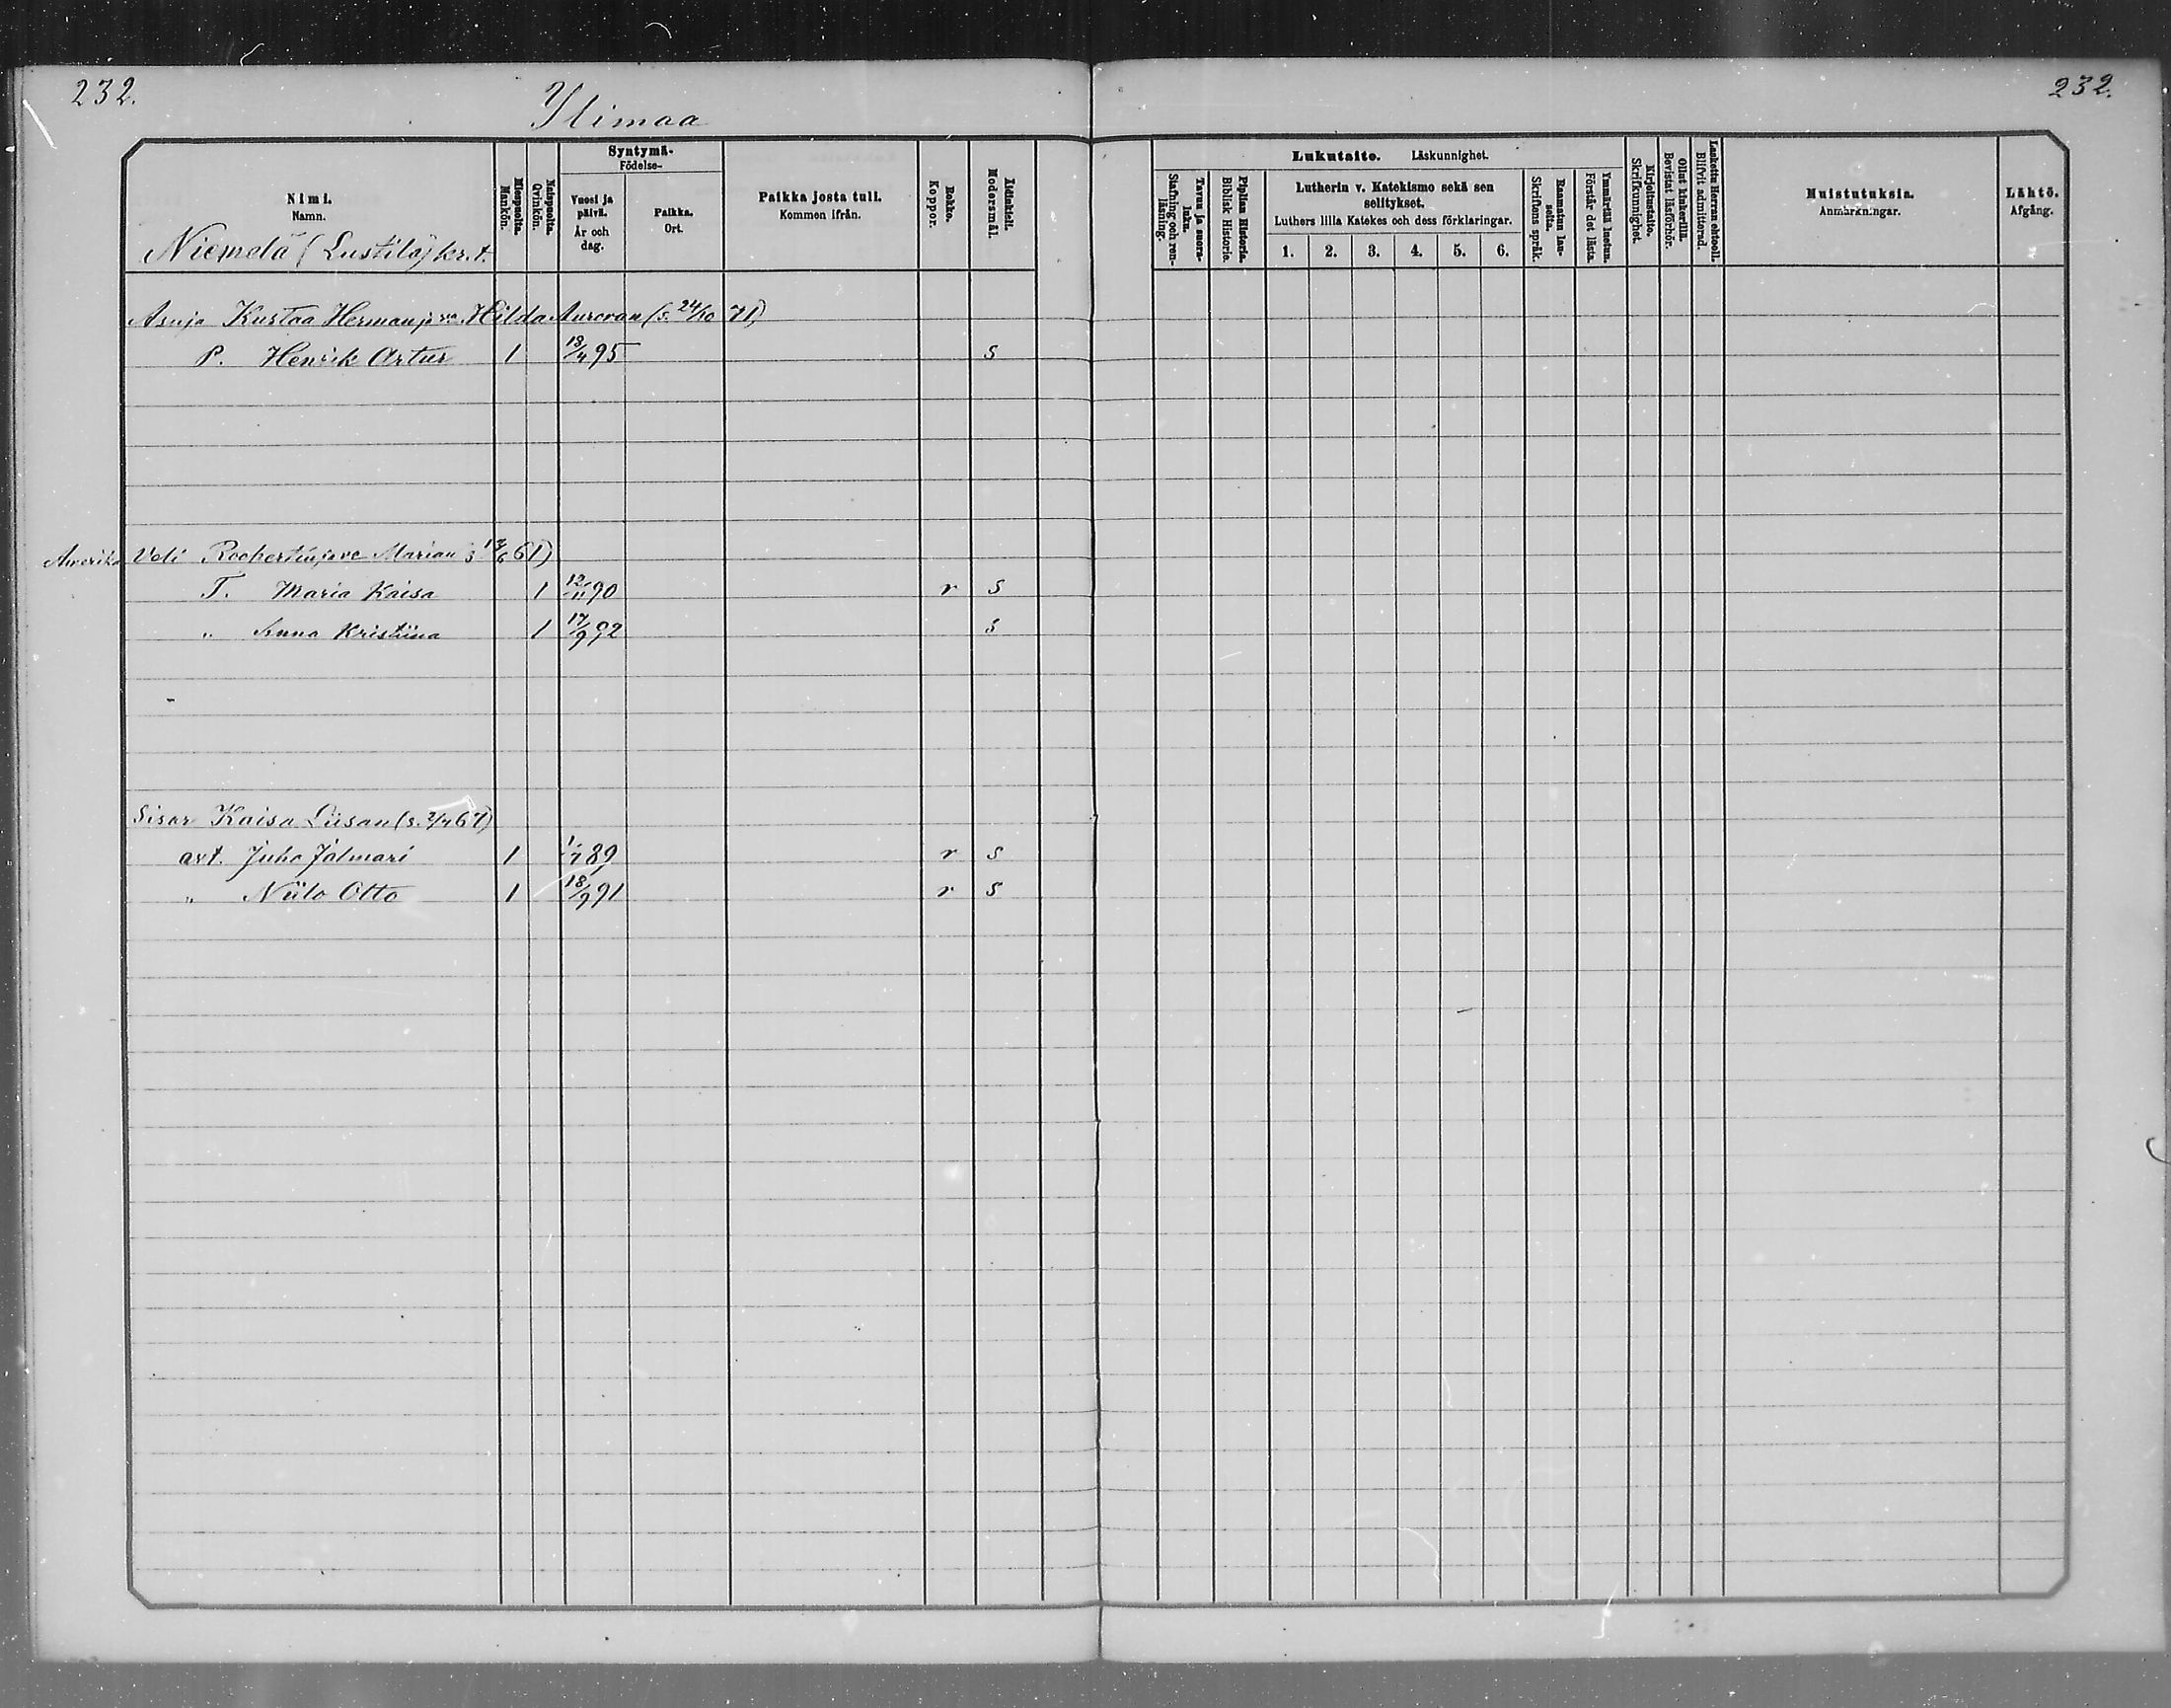 232.
232.
Ylimaa
Nimi.
Namn.
Miespuolia.
Mankön.
Naispuolia.
Qvinkön.
Syntymä-
Födelse-
Vuosi ja päivä.
År och dag.
Paikka.
Ort.
Paikka josta tuli.
Kommen ifrån.
Rokko.
Koppor.
Äidinkieli.
Modersmål.
Lukutaito. Läskunnighet.
Tavuu ja suora-luku.
Stafning och ren-läsning.
Piplian Historia.
Biblisk Historie.
Lutherin v. Katekismo sekä sen selitykset.
Luthers lilla Katekes och dess förklaringar.
1. 2. 3. 4. 5. 6.
Raamatun lau-seita.
Skriftens språk.
Ymmärtää luetun.
Förstår det lästa.
Kirjoitustaito.
Skrifkunnighet.
Ollut kinkerillä.
Bevistat läsförhör.
Laskettu Herran ehtooll.
Blifvit admitterad.
Muistutuksia.
Anmärkningar.
Lähtö.
Afgång.
Niemelä (Lustilä) kr.t.
Asuja Kustaa Herman ja va. Hilda Auroran (s. 24/10 71)
P. Henrik Artur 1 13/4 95 s
Amerika Veli Roopertin ja va Marian s 12/6 61)
T. Maria Kaisa 1 12/11 90 r s
" Anna Kristiina 1 17/9 92 s
Sisar Kaisa Liisan (s. 2/4 67)
avt. Juho Jalmari 1 1/7 89 r s
" Niilo Otto 1 18/9 91 r s